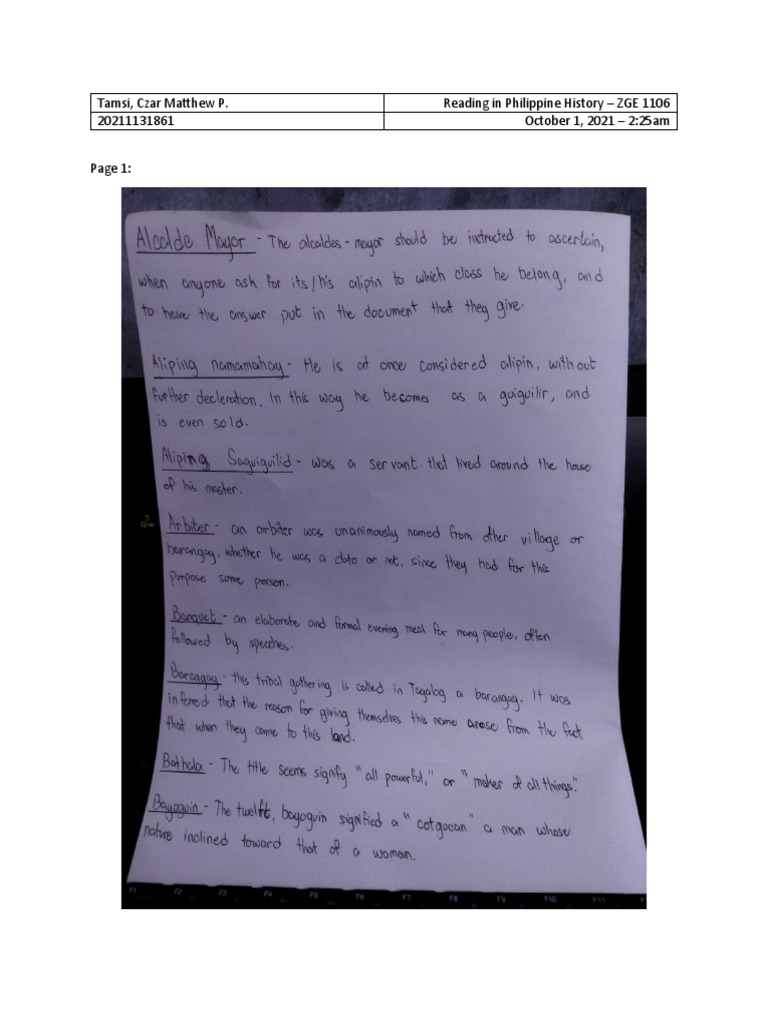 Tamsi, Czar Matthew P.
Reading in Philippine History – ZGE 1106
20211131861
October 1, 2021 – 2:25am
Page 1:
Alcalde Mayor - The alcaldes-mayor should be instructed to ascertain,
when anyone ask for its/his alipin to which class he belong, and
to have the answer put in the document that they give.
Aliping namamahay - He is at once considered alipin, without
further decleration. In this way he becomes as a guiguilir, and
is even sold.
Aliping Saguiguilid - was a servant that lived around the house
of his master.
Arbiter - an arbiter was unanimously named from other village or
barangay, whether he was a dato or not, since they had for this
purpose some person.
Banquet - an elaborate and formal evening meal for many people, often
followed by speeches.
Barangay - this tribal gathering is called in Tagalog a barangay. It was
inferred that the reason for giving themselves this name arose from the fact
that when they came to this land.
Bathala - The title seems signify "all powerful," or "maker of all things."
Bayoguin - The twelft, bayoguin signified a "cotquean" a man whose
nature inclined toward that of a woman.
F1 F2 F3 F4 F5 F6 F7 F8 F9 F10 F11